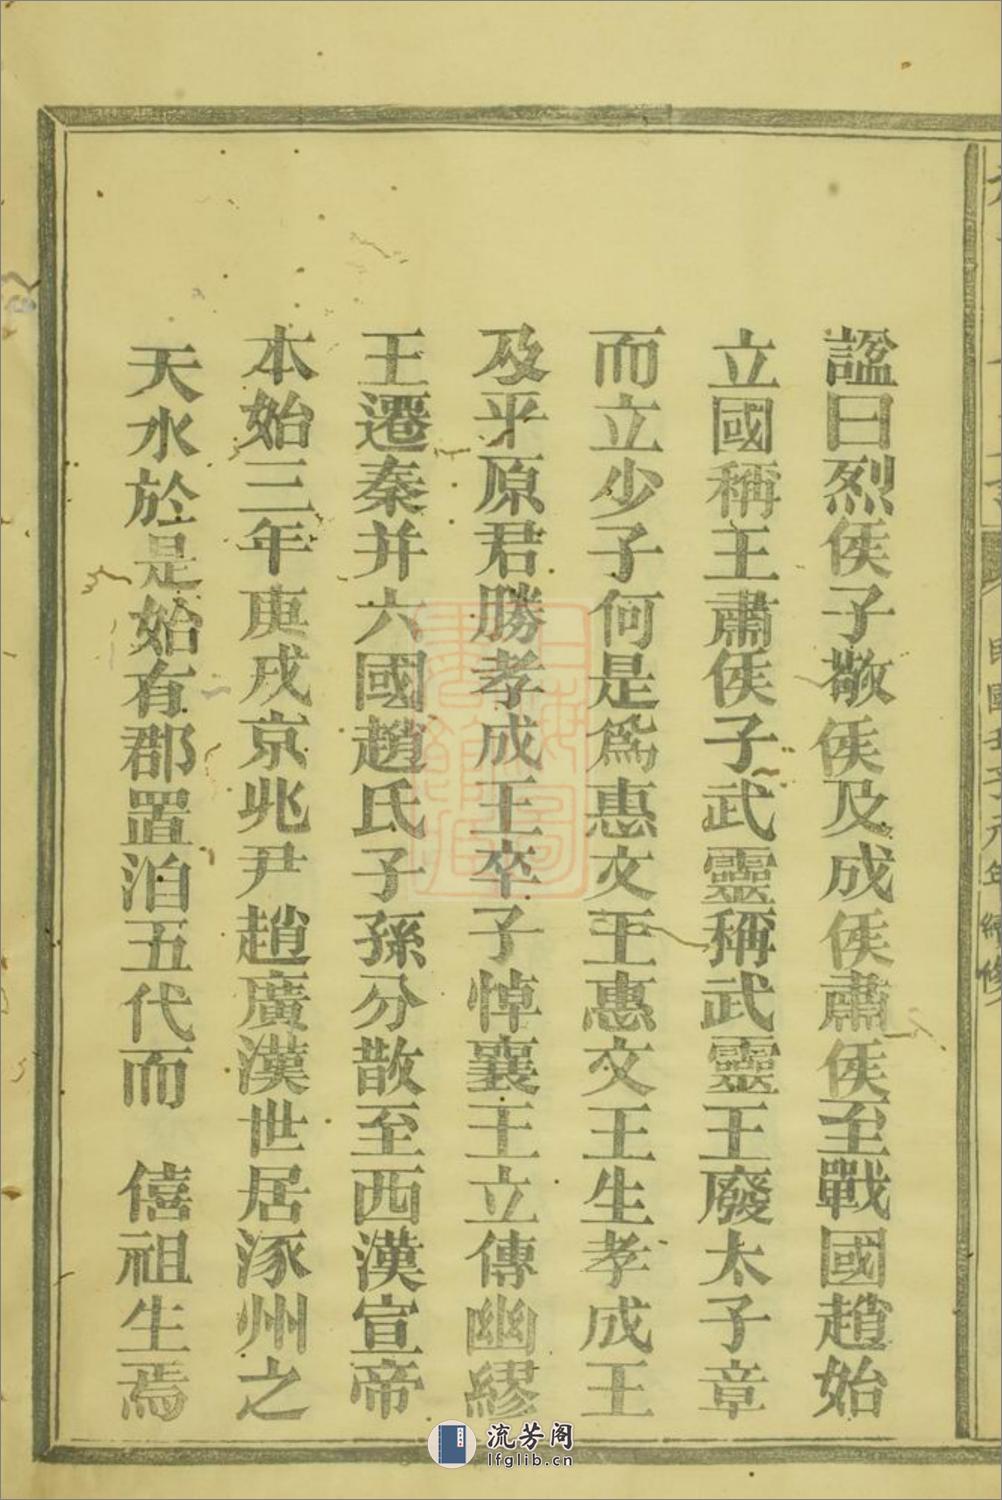 謚曰烈侯子敬侯及成侯肅侯至戰國趙始
立國稱王肅侯子武靈稱武靈王廢太子章
而立少子何是爲惠文王惠文王生孝成王
及平原君勝孝成王卒子悼襄王立傳幽繆
王遷秦并六國趙氏子孫分散至西漢宣帝
本始三年庚戌京兆尹趙廣漢世居涿州之
天水於是始有郡置洎五代而　僖祖生焉
流芳阁
lfglib.cn